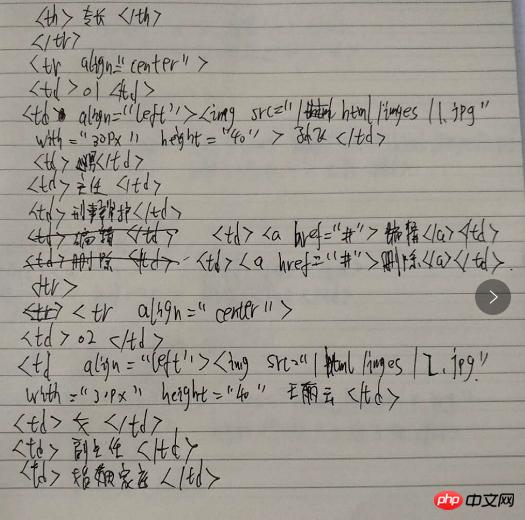 <th> 专长 </th>
</tr>
<tr align="center">
<td> 01 <td>
<td align="left"><img src="/html/imges/1.jpg"
with="30px" height="40" > </td>
<td> 男</td>
<td> 主任 </td>
<td> 刑事辩护</td>
<td> 编辑 </td> <td> <a href="#"> 编辑</a></td>
<td> 删除 <td> <td> <a href="#"> 删除</a></td>
<tr>
<tr> <tr align="center">
<td> 02 </td>
<td align="left"><img src="/html/imges/2.jpg"
with="30px" height="40" 王丽云 </td>
<td> 女 </td>
<td> 副主任 </td>
<td> 婚姻家庭 </td>
php 中文网